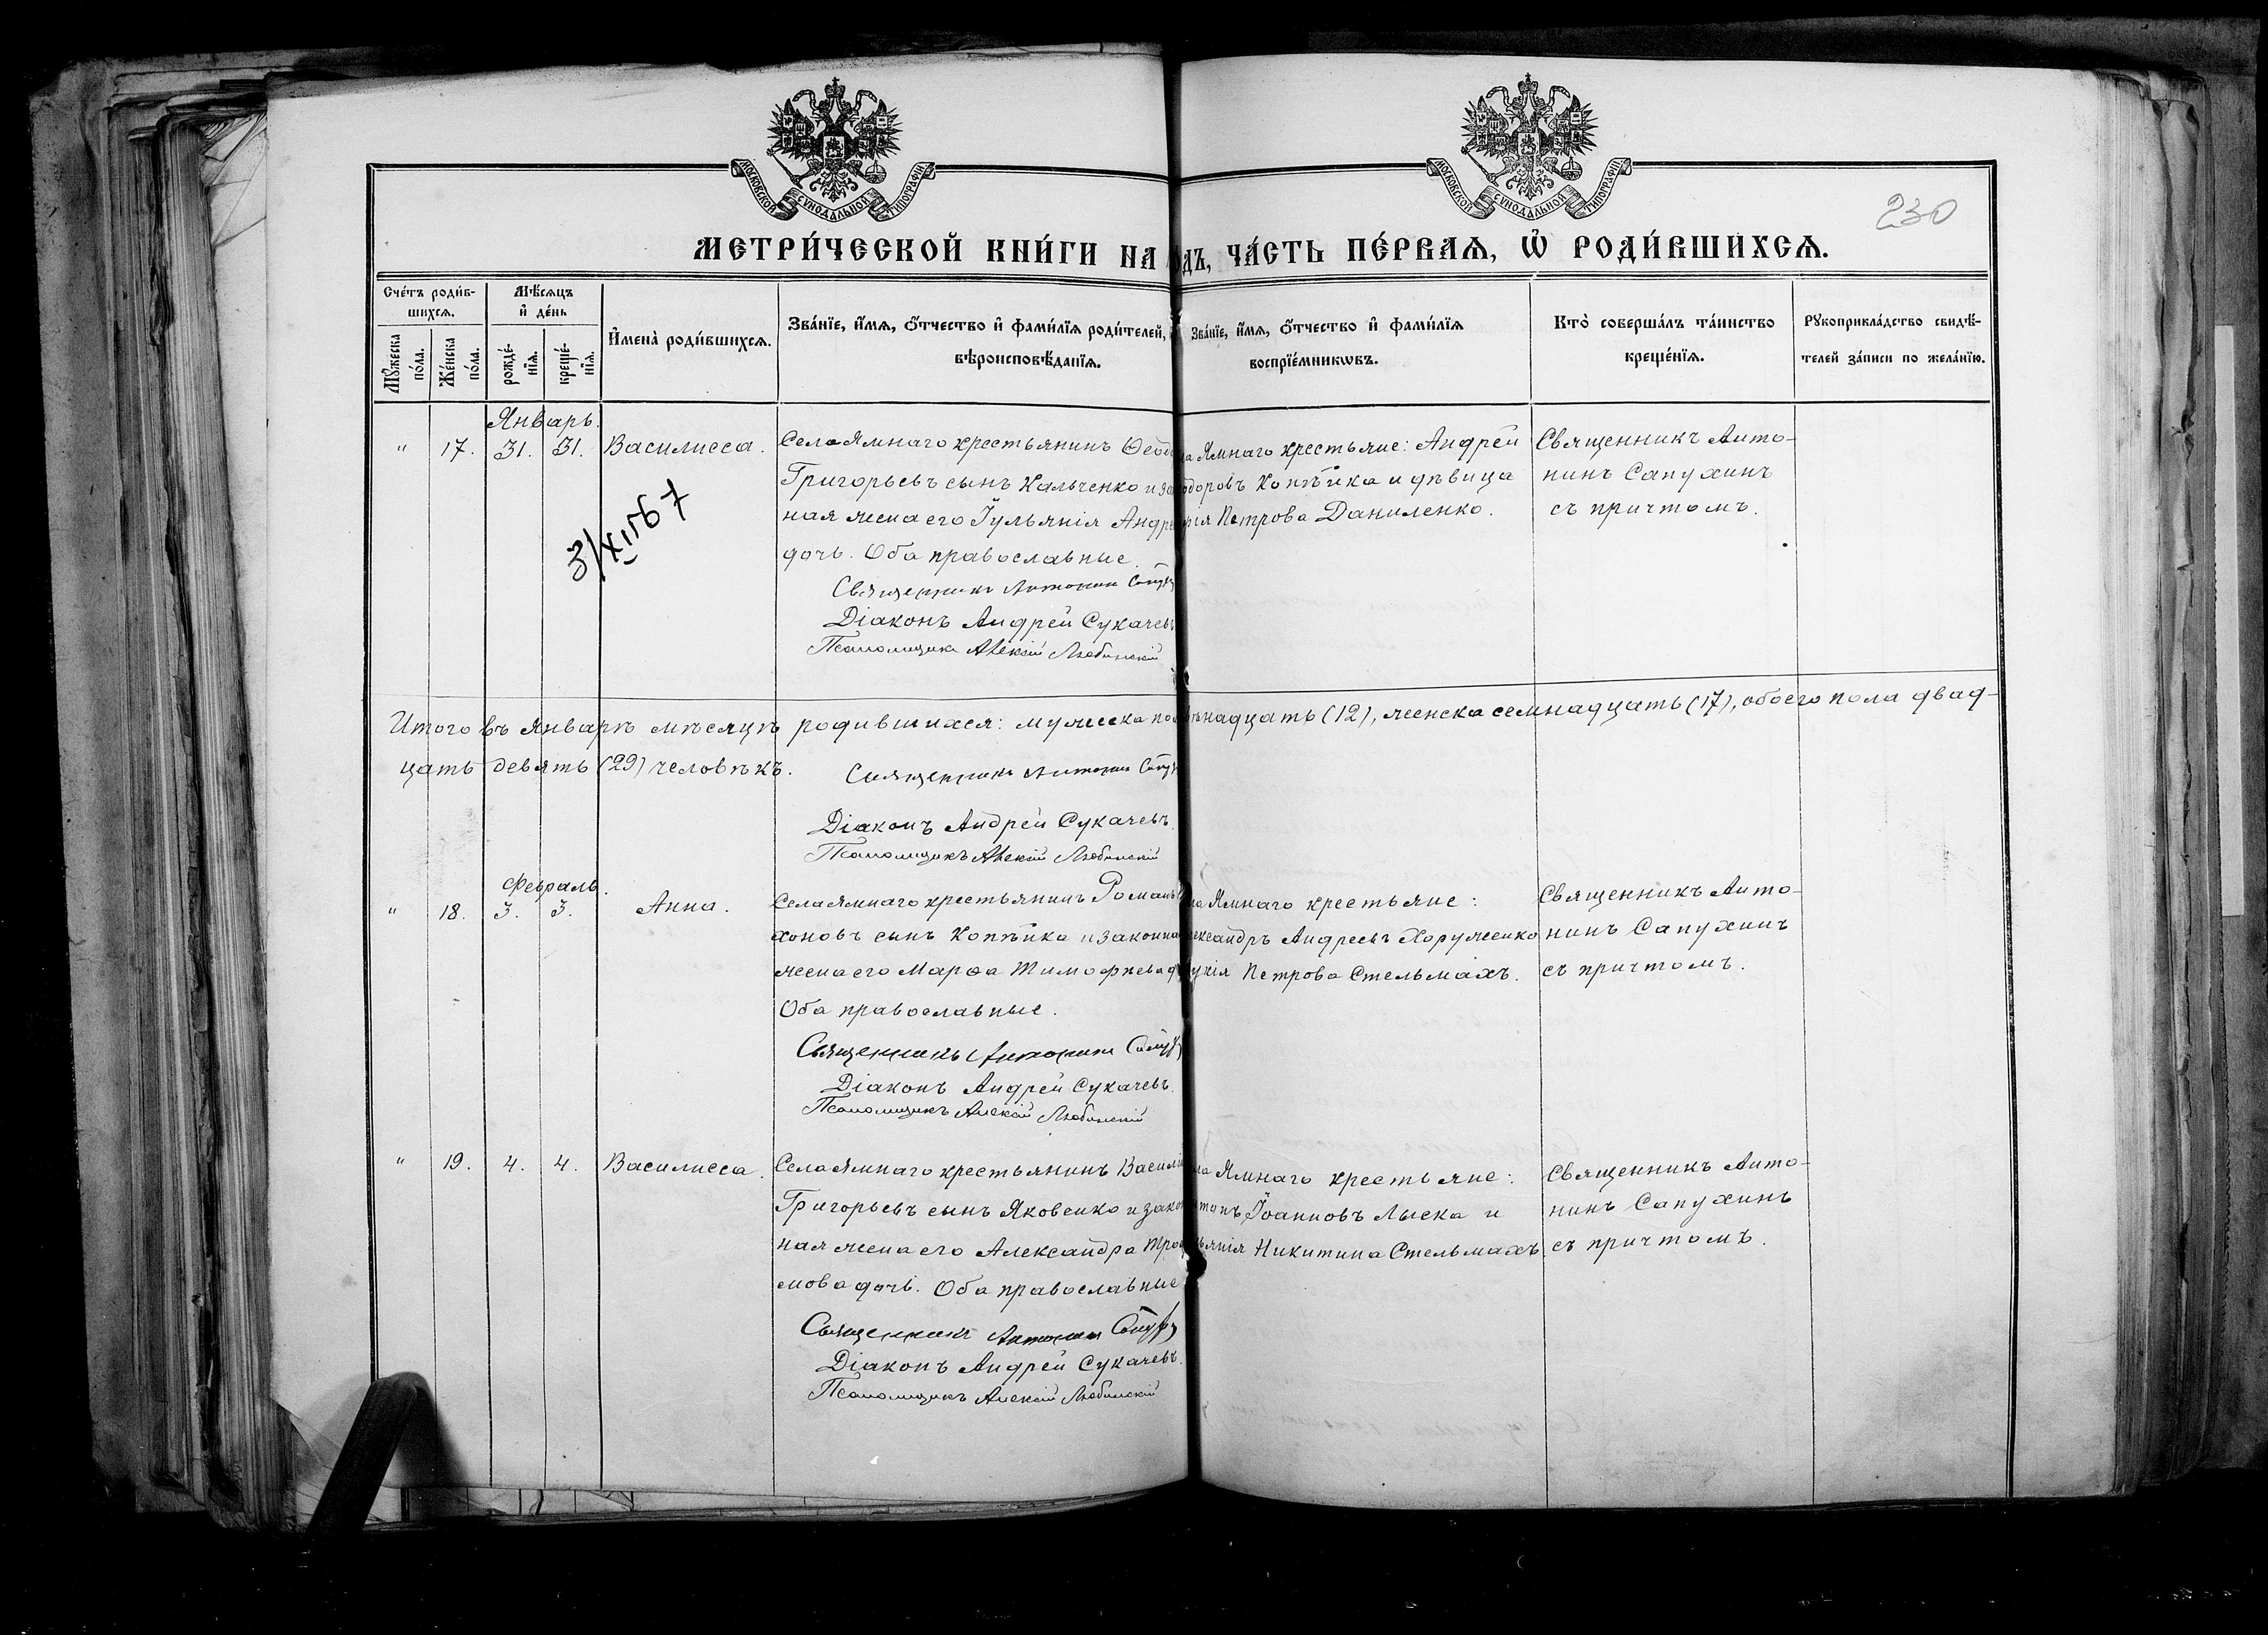 МОСКОВСКОЙ СУНОДАЛЬНОЙ ТИПОГРАФІИ
МОСКОВСКОЙ СУНОДАЛЬНОЙ ТИПОГРАФІИ
230
МЕТРИ́ЧЕСКОЙ КНИ́ГИ НА
ДЪ, ЧА́СТЬ ПЕ́РВАѦ, Ѡ҆ РОДИ́ВШИХСѦ.
Сче́тъ роди́в-
шихсѧ.
Мꙋ́жеска по́ла.
Же́нска по́ла.
Мѣ́сѧцъ
и҆ де́нь
рожде́-
нїѧ.
креще́-
нїѧ.
И҆мена̀ роди́вшихсѧ.
Зва́нїе, и҆́мѧ, ѻ҆́тчество и҆ фами́лїѧ роди́телей,
вѣроисповѣ́данїѧ.
Зва́нїе, и҆́мѧ, ѻ҆́тчество и҆ фами́лїѧ
воспрїе́мникѡвъ.
Кто̀ соверша́лъ та́инство
креще́нїѧ.
Рꙋкоприкла́дство свидѣ́-
телей за́писи по жела́нїю.
Январь.
" 17. 31. 31. Василисса.
Села Ямнаго крестьянинъ Ѳеод
Григорьевъ сынъ Кальченко и за
ная жена его Іульянія Андре
дочь. Оба православные.
Священникъ Антонин Сапух
Діаконъ Андрей Сукачевъ
Псаломщикъ Алексій Любинскій
Ямнаго крестьяне: Андрей
доровъ Копѣйка и дѣвица
рія Петрова Даниленко.
Священникъ Анто-
нинъ Сапухинъ
съ причтомъ.
Итого въ Январѣ мѣсяцѣ родившихся: мужеска по
надцать (12), женска семнадцать (17), обоего пола двад-
цать девять (29) человѣкъ.
Священникъ Антонин Сапух
Діаконъ Андрей Сукачевъ.
Псаломщикъ Алексій Любинскій
Февраль.
" 18. 3. 3. Анна.
Села Ямнаго крестьянинъ Романъ
хоновъ сынъ Копѣйка и законна
жена его Марѳа Тимофѣева д
Оба православные.
Священникъ Антонин Сапух
Діаконъ Андрей Сукачевъ.
Псаломщикъ Алексій Любинскій
ла Ямнаго крестьяне:
лександръ Андреевъ Хоруженко
укія Петрова Стельмахъ.
Священникъ Анто-
нинъ Сапухинъ
съ причтомъ.
" 19. 4. 4. Василисса.
Села Ямнаго крестьянинъ Василі
Григорьевъ сынъ Яковенко и закон
ная жена его Александра Тро
мова дочь. Оба православные
Священникъ Антонин Сапух
Діаконъ Андрей Сукачевъ.
Псаломщикъ Алексій Любинскій
ла Ямнаго крестьяне:
Іоанновъ Лыска и
ьянія Никитина Стельмахъ.
Священникъ Анто-
нинъ Сапухинъ
съ причтомъ.